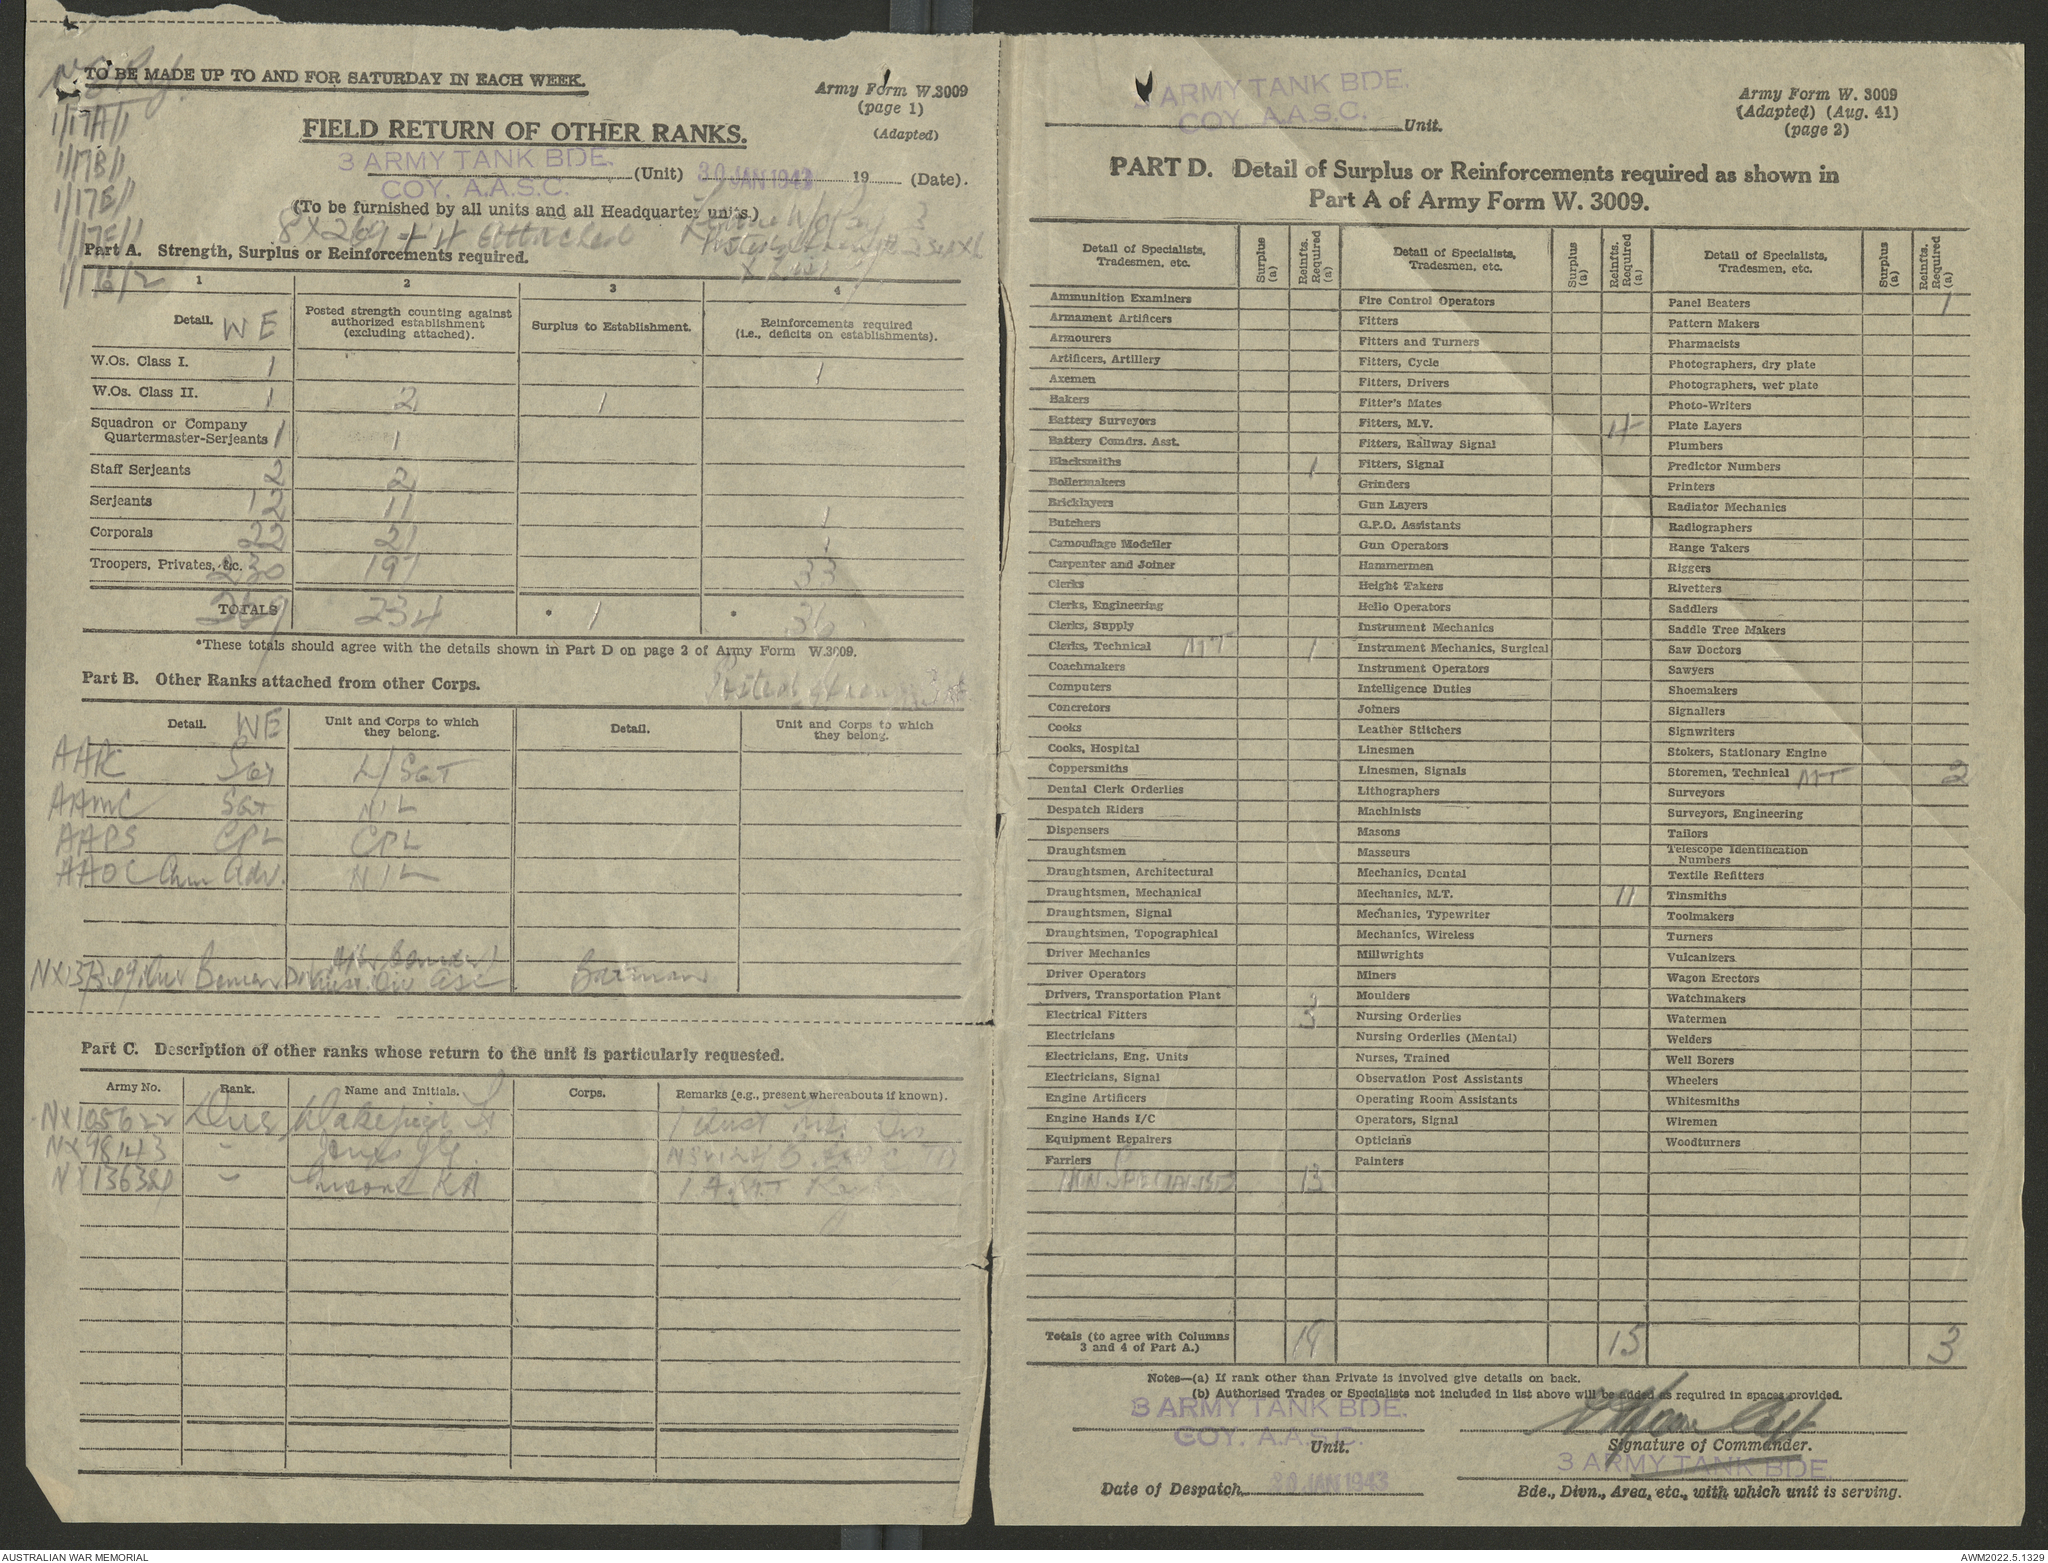 TO BE MADE UP TO AND FOR SATURDAY IN EACH WEEK.
Army Form W.3009
(page 1)
(Adapted)
1/17A/1
1/17B/1
1/17E/1
1/17E/1
1/16/2
FIELD RETURN OF OTHER RANKS.
3 ARMY TANK BDE.
COY. A.A.S.C. (Unit) 30 JAN 1943 19 (Date).
(To be furnished by all units and all Headquarter units.)
8 X 269 + 4 attached
Part A. Strength, Surplus or Reinforcements required.
1 2 3 4
Detail. WE Posted strength counting against authorized establishment (excluding attached). Surplus to Establishment. Reinforcements required (i.e., deficits on establishments).
W.Os. Class I. 1 1
W.Os. Class II. 1 2 1
Squadron or Company Quartermaster-Serjeants 1 1
Staff Serjeants 2 2
Serjeants 12 11 1
Corporals 22 21 1
Troopers, Privates, &c. 230 197 33
TOTALS 269 234 * 1 * 36
*These totals should agree with the details shown in Part D on page 2 of Army Form W.3009.
Part B. Other Ranks attached from other Corps.
Posted
Detail. WE Unit and Corps to which they belong. Detail. Unit and Corps to which they belong.
Sgt L/SGT
AAMC SGT NIL
AAPS CPL CPL
AAOC Adv. NIL
Batman
Part C. Description of other ranks whose return to the unit is particularly requested.
Army No. Rank. Name and Initials. Corps. Remarks (e.g., present whereabouts if known).
NX105622 Dvr
NX98143 "
"
3 ARMY TANK BDE.
COY. A.A.S.C. Unit.
Army Form W. 3009
(Adapted) (Aug. 41)
(page 2)
PART D. Detail of Surplus or Reinforcements required as shown in
Part A of Army Form W. 3009.
Detail of Specialists, Tradesmen, etc. Surplus (a) Reinfts. Required (a) Detail of Specialists, Tradesmen, etc. Surplus (a) Reinfts. Required (a) Detail of Specialists, Tradesmen, etc. Surplus (a) Reinfts. Required (a)
Ammunition Examiners Fire Control Operators Panel Beaters 1
Armament Artificers Fitters Pattern Makers
Armourers Fitters and Turners Pharmacists
Artificers, Artillery Fitters, Cycle Photographers, dry plate
Axemen Fitters, Drivers Photographers, wet plate
Bakers Fitter's Mates Photo-Writers
Battery Surveyors Fitters, M.V. 4 Plate Layers
Battery Comdrs. Asst. Fitters, Railway Signal Plumbers
Blacksmiths 1 Fitters, Signal Predictor Numbers
Boilermakers Grinders Printers
Bricklayers Gun Layers Radiator Mechanics
Butchers G.P.O. Assistants Radiographers
Camouflage Modeller Gun Operators Range Takers
Carpenter and Joiner Hammermen Riggers
Clerks Height Takers Rivetters
Clerks, Engineering Helio Operators Saddlers
Clerks, Supply Instrument Mechanics Saddle Tree Makers
Clerks, Technical MT 1 Instrument Mechanics, Surgical Saw Doctors
Coachmakers Instrument Operators Sawyers
Computers Intelligence Duties Shoemakers
Concretors Joiners Signallers
Cooks Leather Stitchers Signwriters
Cooks, Hospital Linesmen Stokers, Stationary Engine
Coppersmiths Linesmen, Signals Storemen, Technical MT 2
Dental Clerk Orderlies Lithographers Surveyors
Despatch Riders Machinists Surveyors, Engineering
Dispensers Masons Tailors
Draughtsmen Masseurs Telescope Identification Numbers
Draughtsmen, Architectural Mechanics, Dental Textile Refitters
Draughtsmen, Mechanical Mechanics, M.T. 11 Tinsmiths
Draughtsmen, Signal Mechanics, Typewriter Toolmakers
Draughtsmen, Topographical Mechanics, Wireless Turners
Driver Mechanics Millwrights Vulcanizers
Driver Operators Miners Wagon Erectors
Drivers, Transportation Plant Moulders Watchmakers
Electrical Fitters 3 Nursing Orderlies Watermen
Electricians Nursing Orderlies (Mental) Welders
Electricians, Eng. Units Nurses, Trained Well Borers
Electricians, Signal Observation Post Assistants Wheelers
Engine Artificers Operating Room Assistants Whitesmiths
Engine Hands I/C Operators, Signal Wiremen
Equipment Repairers Opticians Woodturners
Farriers Painters
NON SPECIALISTS 13
Totals (to agree with Columns 3 and 4 of Part A.) 18 15 3
Notes—(a) If rank other than Private is involved give details on back.
(b) Authorised Trades or Specialists not included in list above will be added as required in spaces provided.
3 ARMY TANK BDE.
COY. A.A.S.C.
Unit.
Capt
Signature of Commander.
3 ARMY TANK BDE.
Date of Despatch 30 JAN 1943
Bde., Divn., Area, etc., with which unit is serving.
AUSTRALIAN WAR MEMORIAL
AWM2022.5.1329